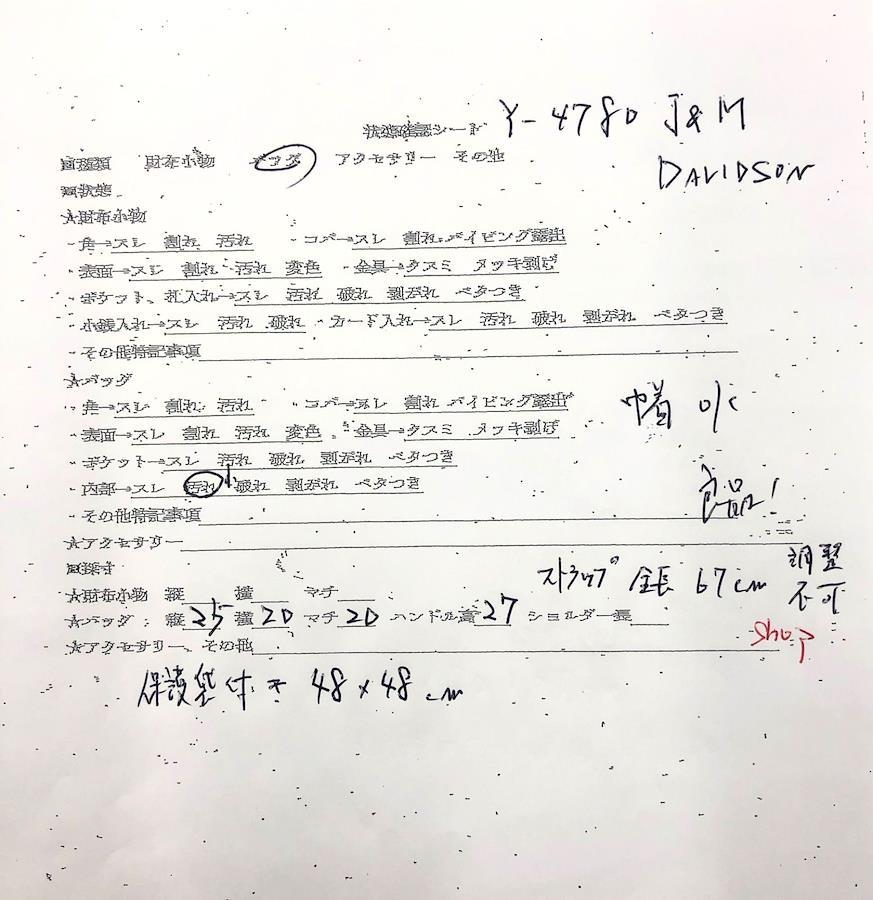 状態確認シート Y-4780 J&M
DAVIDSON
■種類 財布小物 バッグ アクセサリー その他
■状態
★財布小物
・角→スレ 割れ 汚れ ・コバ→スレ 割れ パイピング露出
・表面→スレ 割れ 汚れ 変色 ・金具→クスミ メッキ剥げ
・ポケット、札入れ→スレ 汚れ 破れ 剥がれ ベタつき
・小銭入れ→スレ 汚れ 破れ ・カード入れ→スレ 汚れ 破れ 剥がれ ベタつき
・その他特記事項
★バッグ
・角→スレ 割れ 汚れ ・コバ→スレ 割れ パイピング露出
巾着
・表面→スレ 割れ 汚れ 変色 ・金具→クスミ メッキ剥げ
・ポケット→スレ 汚れ 破れ 剥がれ ベタつき
・内部→スレ 汚れ 小 破れ 剥がれ ベタつき
良品!
・その他特記事項
★アクセサリー
■採寸
ストラップ 全長 67cm 調整
不可
★財布小物 縦 横 マチ
★バッグ:縦25 横20 マチ20 ハンドル高27 ショルダー長
shop
★アクセサリー、その他
保護袋付き 48×48cm